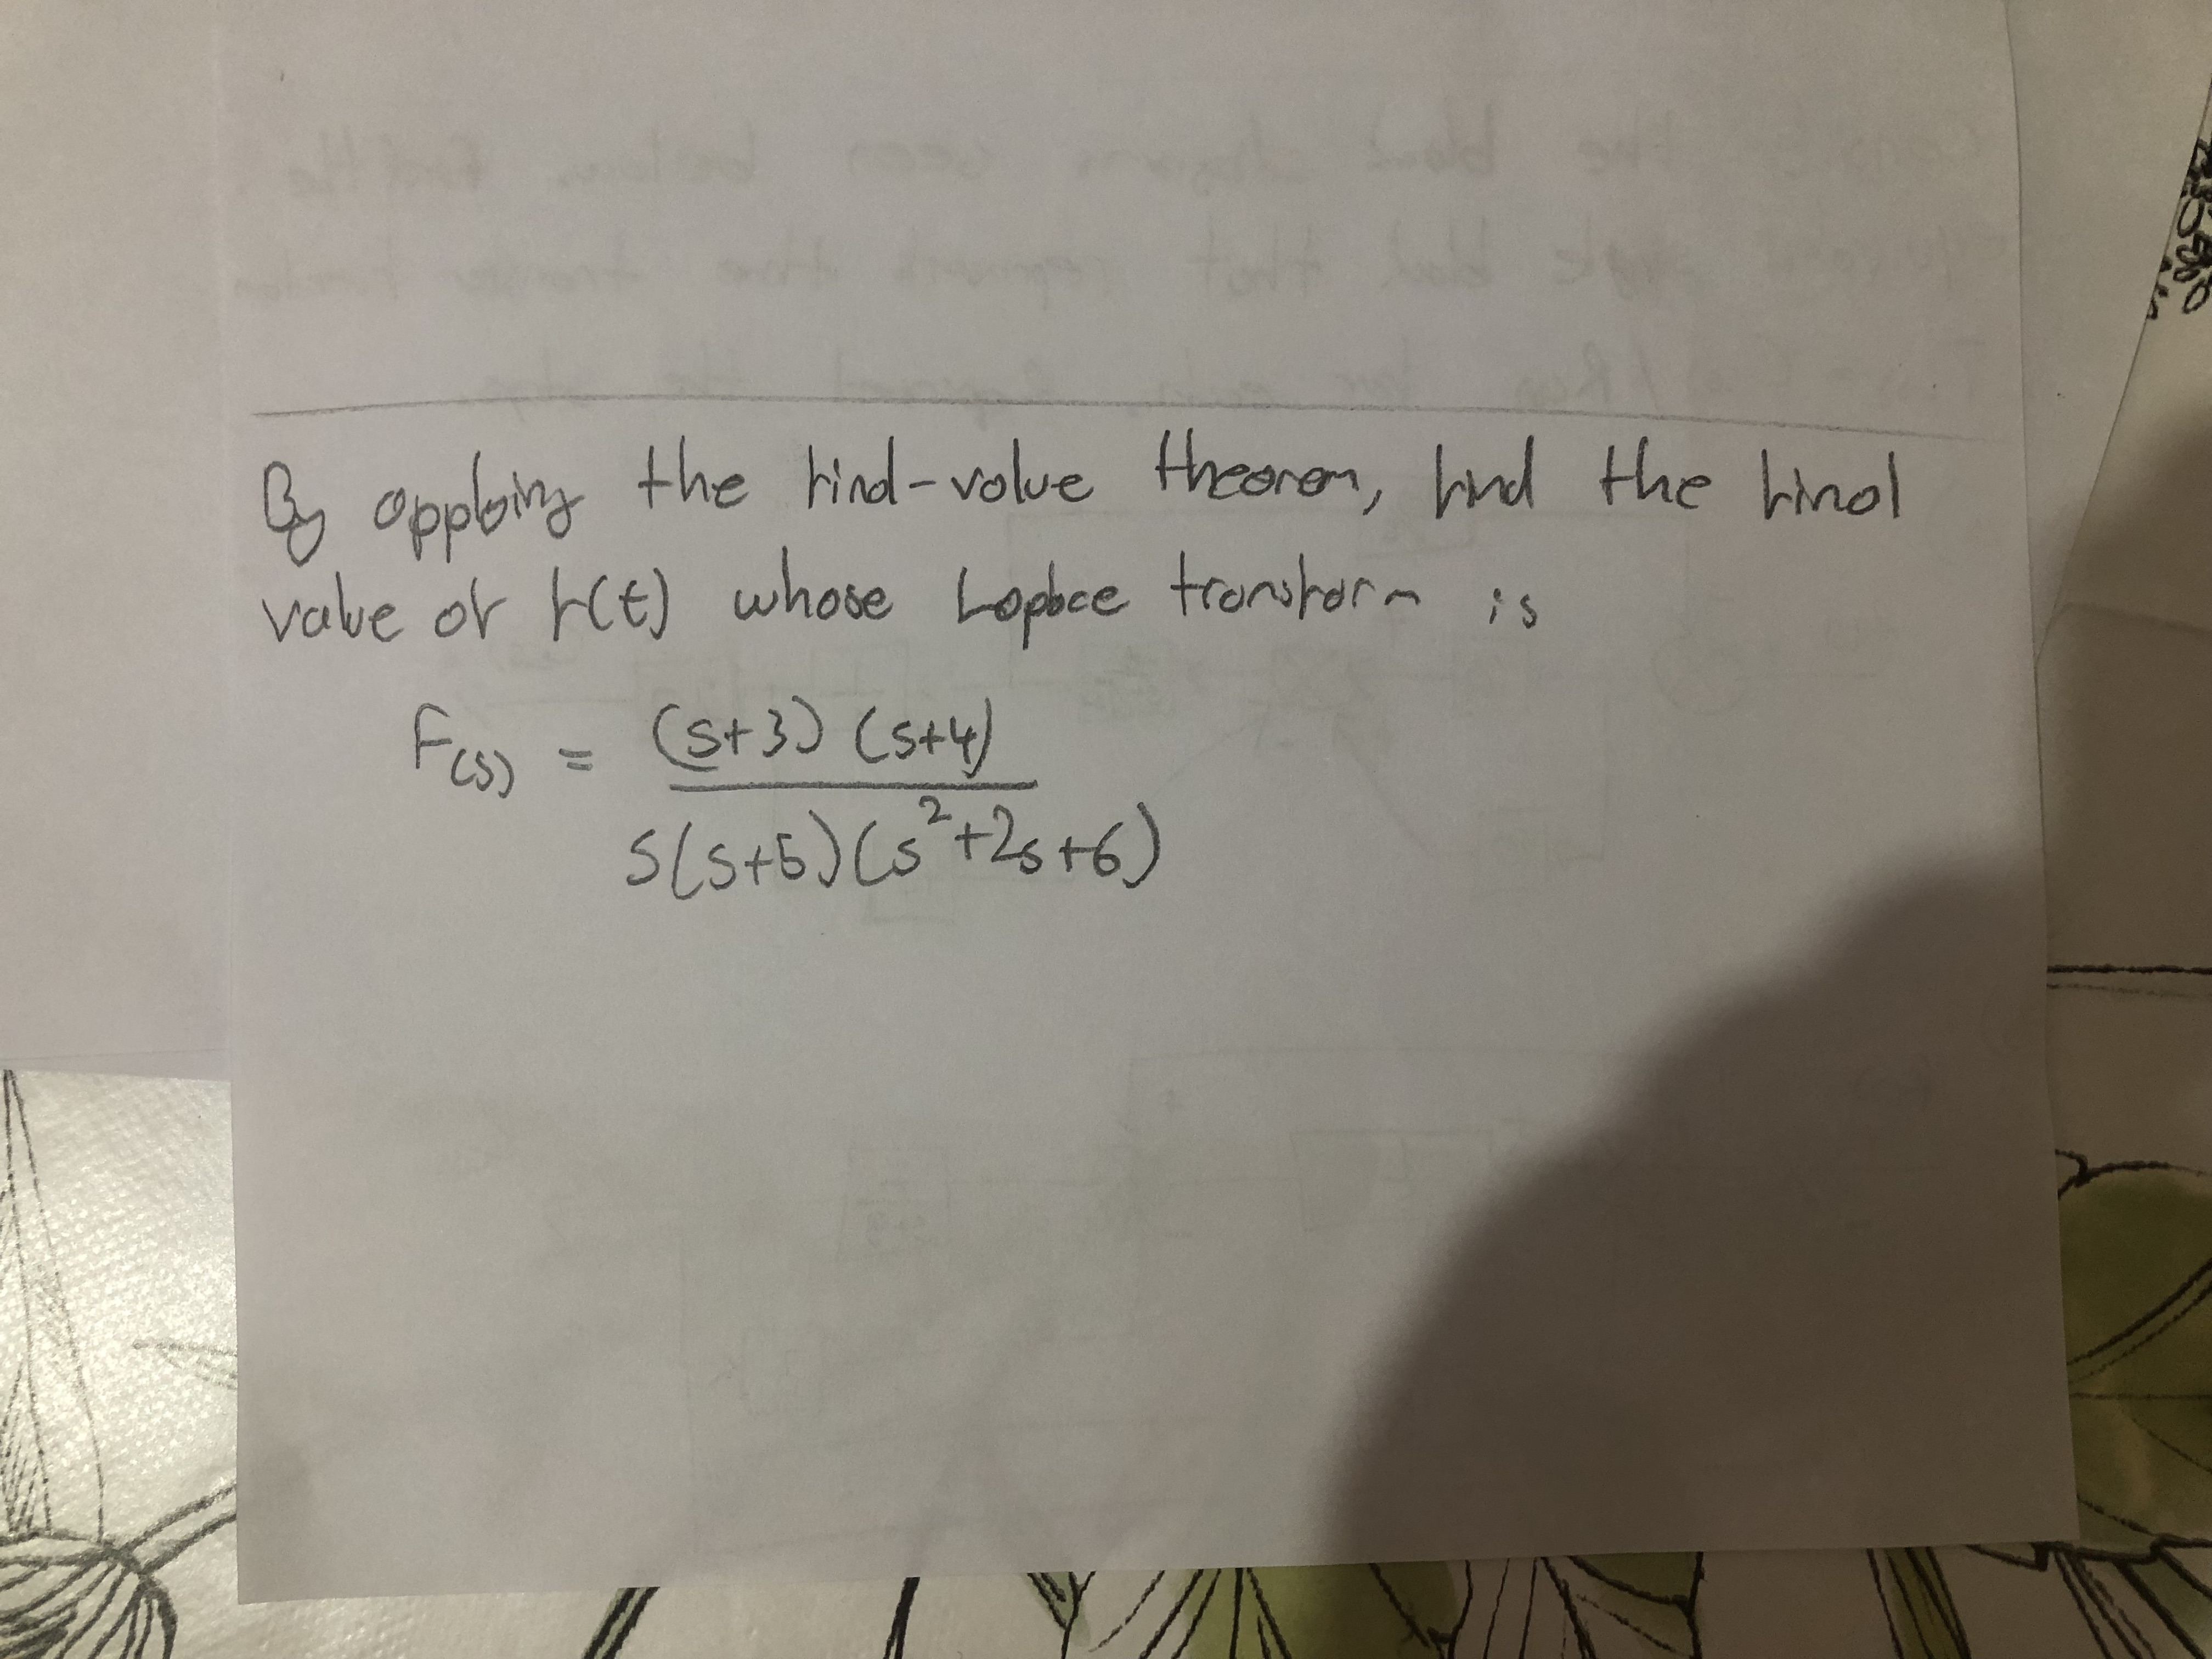 By applying the final-value theorem, find the final
value of f(t) whose Laplace transform is
F(s) = (s+3) (s+4) / s(s+5)(s²+2s+6)